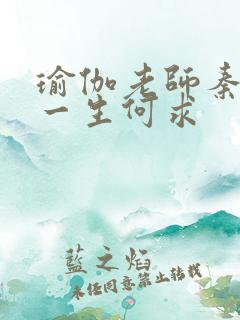 瑜伽老師秦
一生何求
藍之焰
未经同意禁止转载